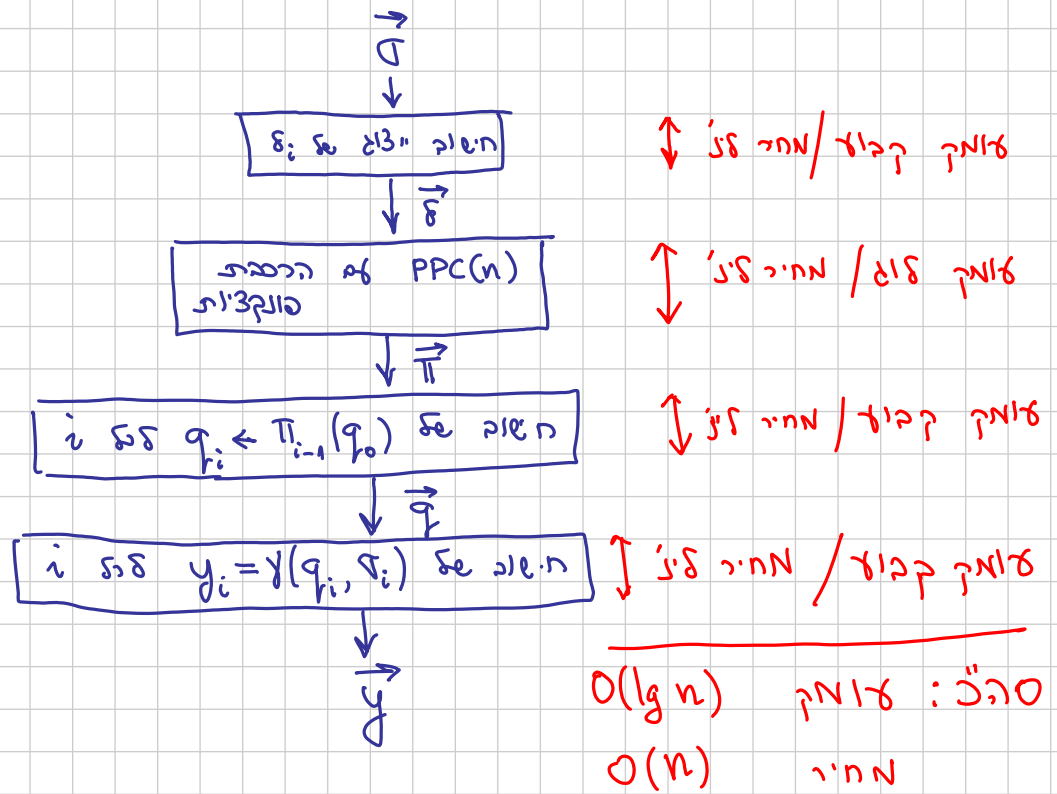 σ⃗
חישוב ייצוג של δᵢ
עומק קבוע / מחיר לינ'
δ⃗
PPC(n) עם הרכבת
פונקציות
עומק לוג / מחיר לינ'
π⃗
חישוב של qᵢ ← πᵢ₋₁(q₀) לכל i
עומק קבוע / מחיר לינ'
q⃗
חישוב של yᵢ = γ(qᵢ, σᵢ) לכל i
עומק קבוע / מחיר לינ'
y⃗
סה"כ: עומק O(lg n)
מחיר O(n)